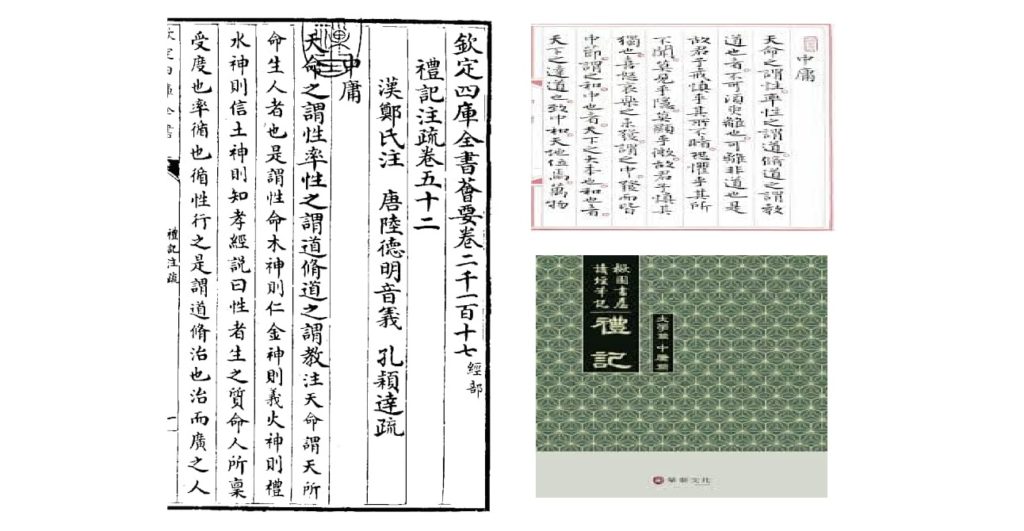 欽定四庫全書薈要卷二千一百十七 經部
禮記注疏卷五十二
漢鄭氏注 唐陸德明音義 孔穎達疏
中庸
天命之謂性率性之謂道脩道之謂教注天命謂天所
命生人者也是謂性命木神則仁金神則義火神則禮
水神則信土神則知孝經說曰性者生之質命人所稟
受度也率循也循性行之是謂道脩治也治而廣之人
欽定四庫全書
禮記注疏
一
中庸
天命之謂性率性之謂道脩道之謂教
道也者不可須臾離也可離非道也是
故君子戒慎乎其所不睹恐懼乎其所
不聞莫見乎隱莫顯乎微故君子慎其
獨也喜怒哀樂之未發謂之中發而皆
中節謂之和中也者天下之大本也和也者
天下之達道也致中和天地位焉萬物
園書屋
筆記
禮記
大學篇 中庸篇
文化